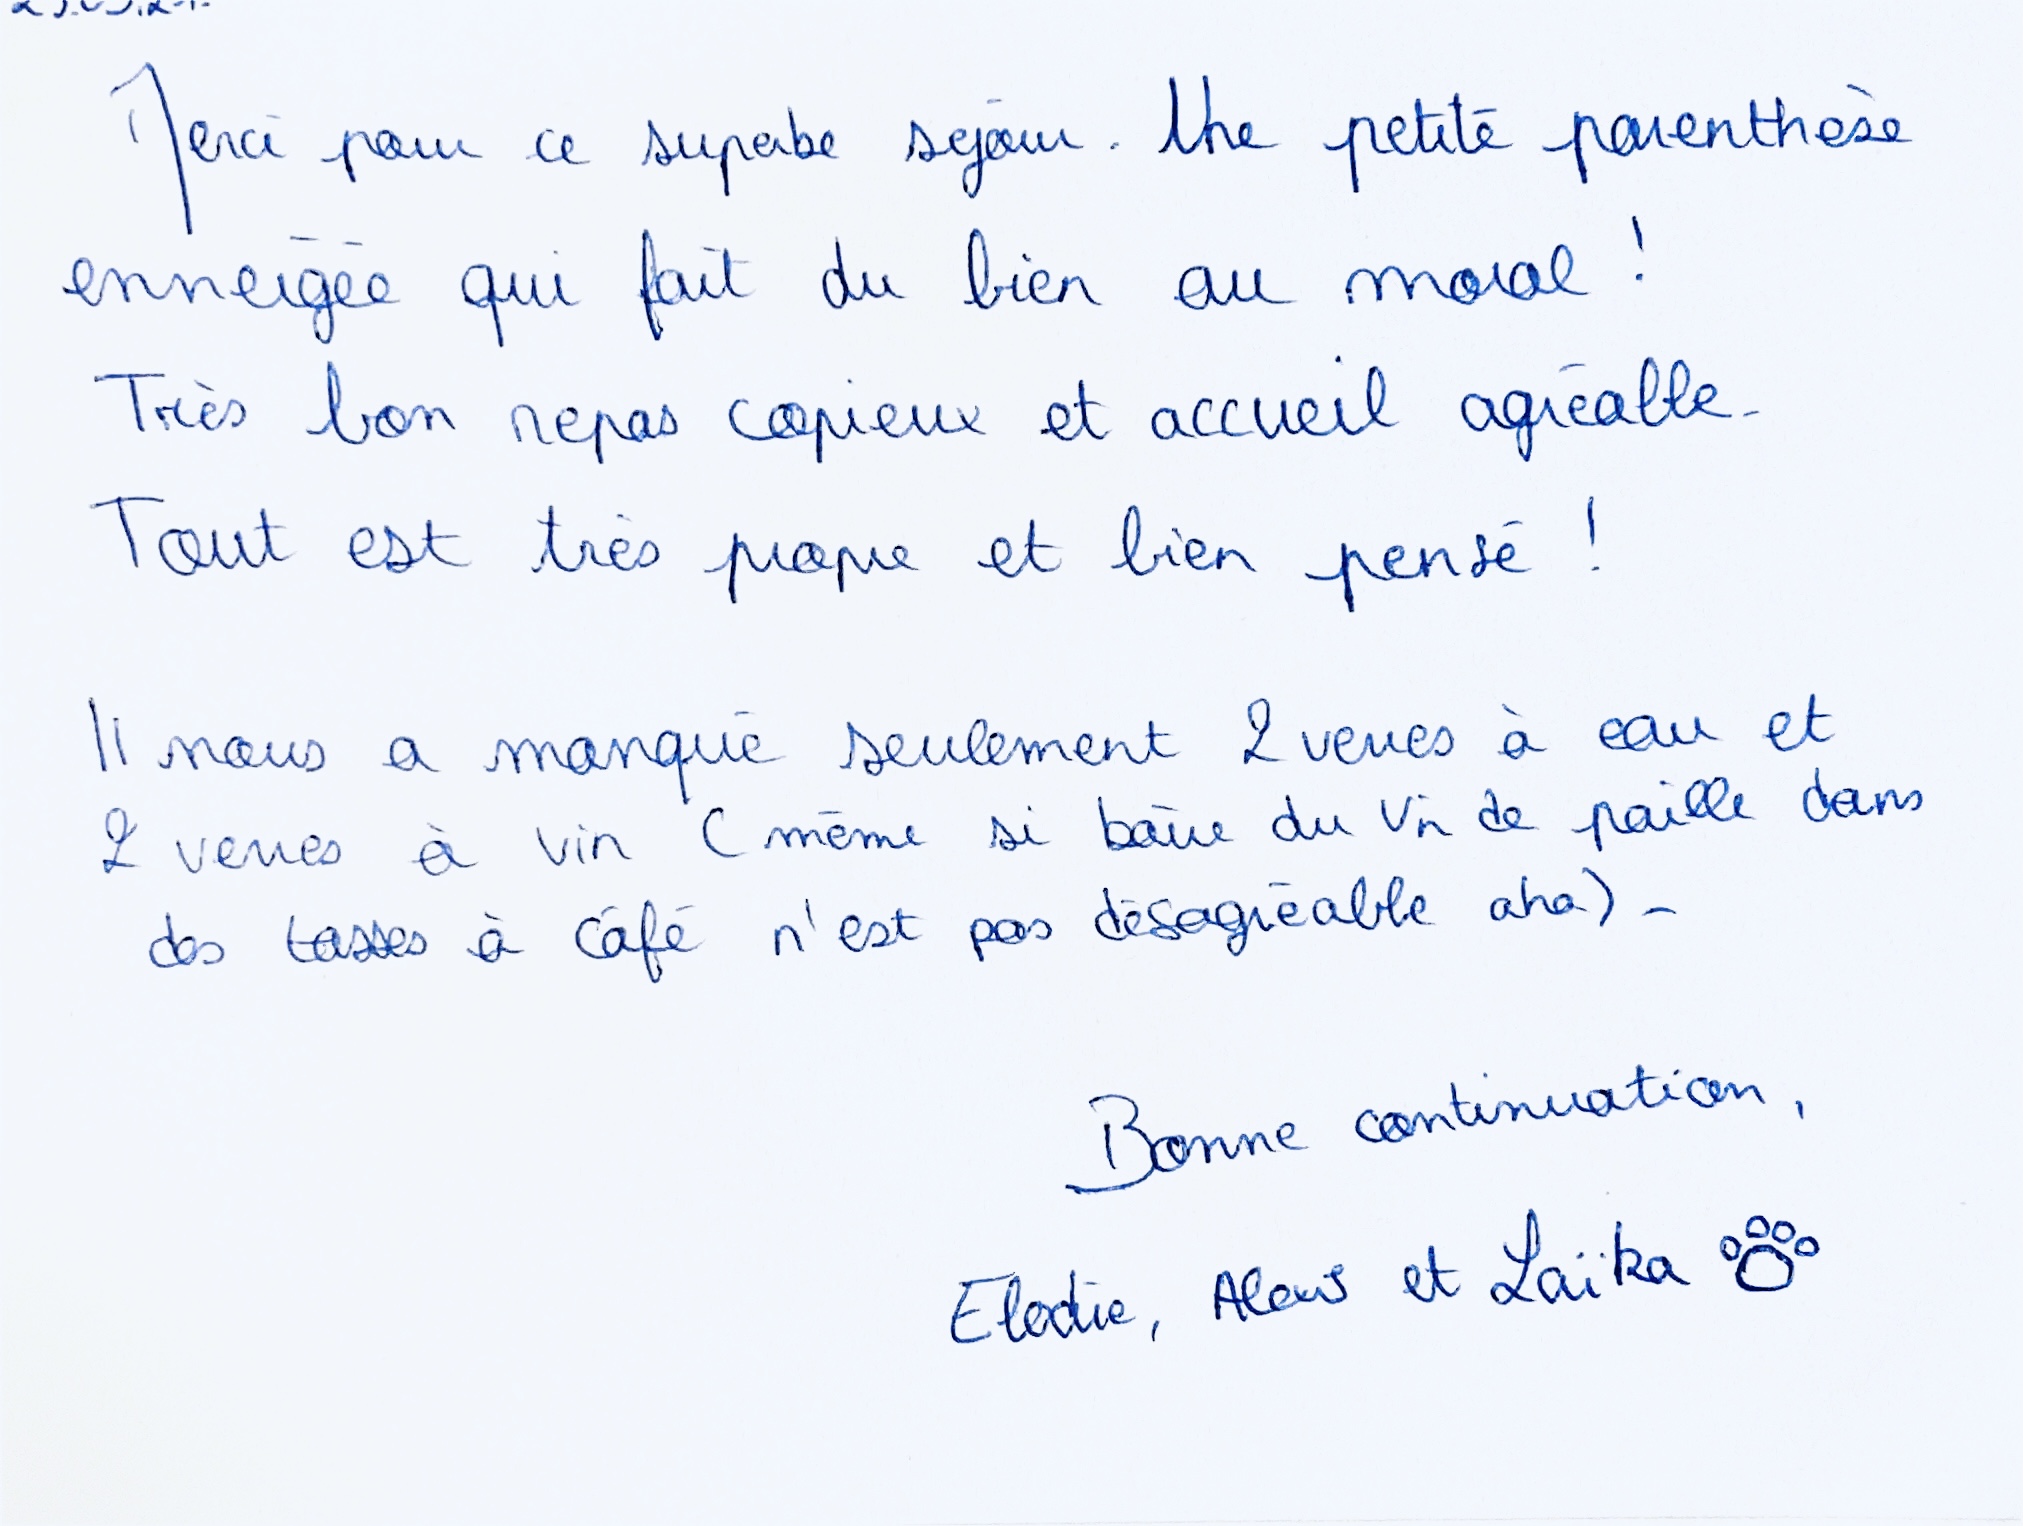 Merci pour ce superbe séjour. Une petite parenthèse
enneigée qui fait du bien au moral !
Très bon repas copieux et accueil agréable.
Tout est très propre et bien pensé !
Il nous a manqué seulement 2 verres à eau et
2 verres à vin (même si boire du vin de paille dans
des tasses à café n'est pas désagréable aha).
Bonne continuation,
Elodie, et Laïka